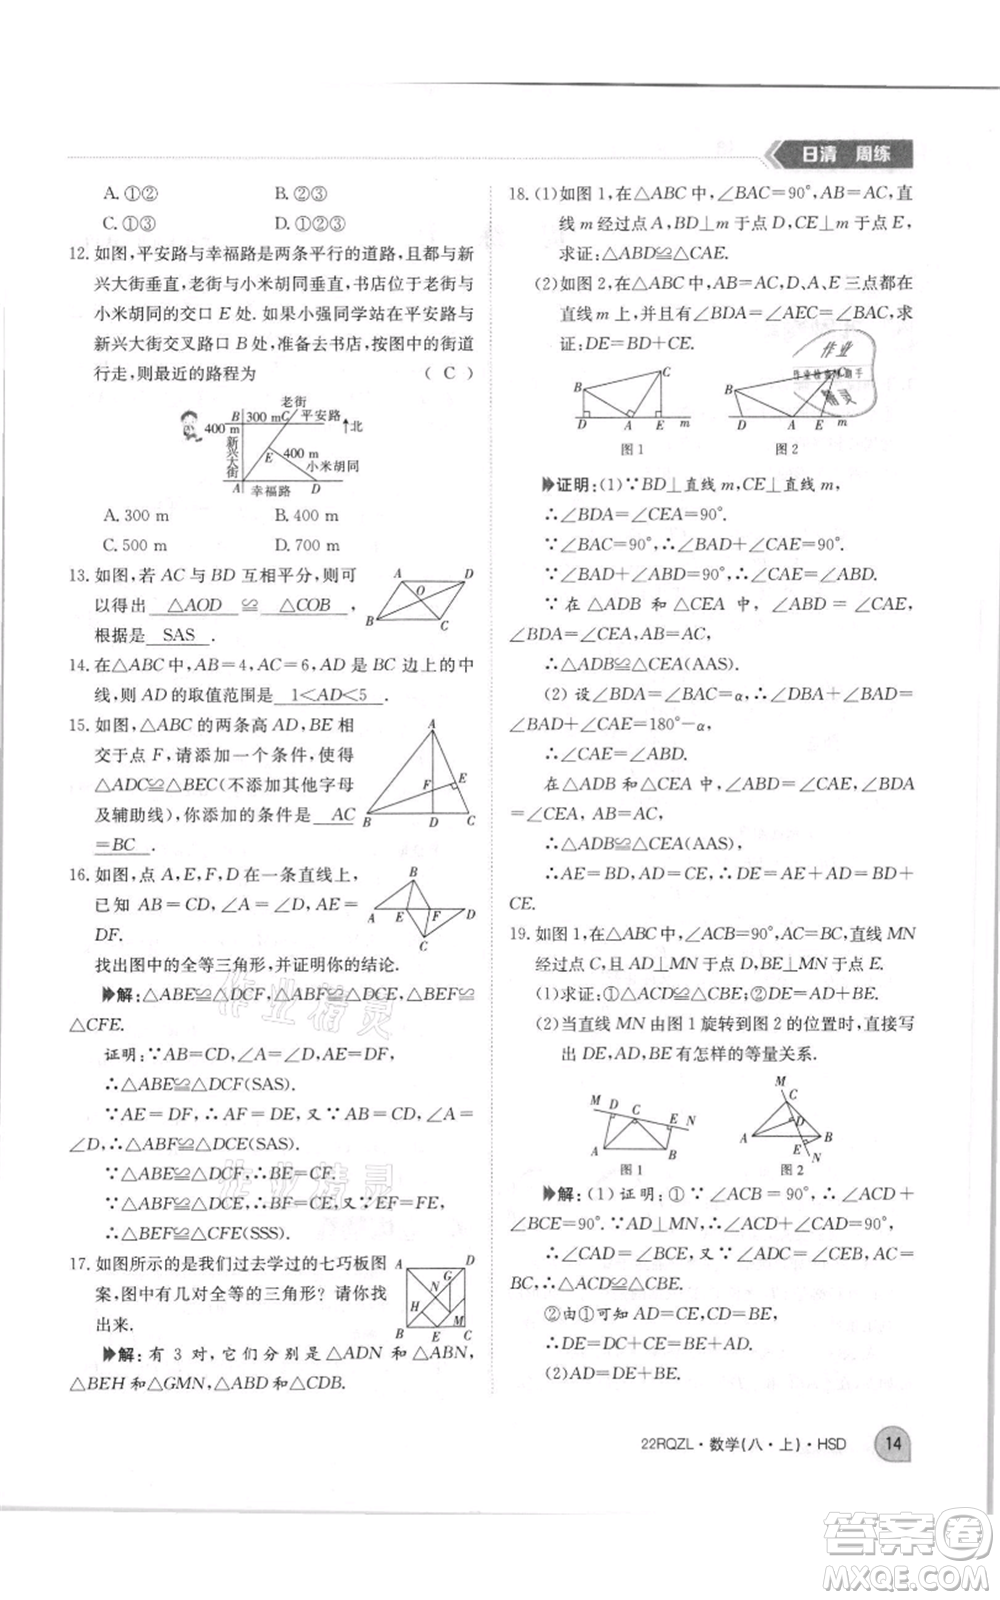 日清 周练
A.①② B.②③
C.①③ D.①②③
12.如图,平安路与幸福路是两条平行的道路,且都与新
兴大街垂直,老街与小米胡同垂直,书店位于老街与
小米胡同的交口 E 处.如果小强同学站在平安路与
新兴大街交叉路口 B 处,准备去书店,按图中的街道
行走,则最近的路程为 ( C )
老街
B 300 m C 平安路
400 m
北
新兴大街
E 400 m
小米胡同
A 幸福路 D
A. 300 m B. 400 m
C. 500 m D. 700 m
13.如图,若 AC 与 BD 互相平分,则可
以得出 △AOD ≌ △COB ,
根据是 SAS .
A D
O
B C
14.在△ABC中,AB=4,AC=6,AD 是 BC 边上的中
线,则 AD 的取值范围是 1<AD<5 .
15.如图,△ABC 的两条高 AD,BE 相
交于点 F,请添加一个条件,使得
△ADC≌△BEC(不添加其他字母
及辅助线),你添加的条件是 AC
=BC .
A
F E
B D C
16.如图,点 A,E,F,D 在一条直线上,
已知 AB=CD,∠A=∠D,AE=
DF.
B
A E F D
C
找出图中的全等三角形,并证明你的结论.
解:△ABE≌△DCF,△ABF≌△DCE,△BEF≌
△CFE.
证明:∵AB=CD,∠A=∠D,AE=DF,
∴△ABE≌△DCF(SAS).
∵AE=DF,∴AF=DE,又∵AB=CD,∠A=
∠D,∴△ABF≌△DCE(SAS).
∵△ABE≌△DCF,∴BE=CF.
∵△ABF≌△DCE,∴BF=CE,又∵EF=FE,
∴△BEF≌△CFE(SSS).
17.如图所示的是我们过去学过的七巧板图
案,图中有几对全等的三角形?请你找
出来.
A D
N G
H M
B E C
解:有 3 对,它们分别是△ADN 和△ABN,
△BEH和△GMN,△ABD 和△CDB.
18.(1)如图 1,在△ABC 中,∠BAC=90°,AB=AC,直
线 m 经过点 A,BD⊥m 于点 D,CE⊥m 于点 E,
求证:△ABD≌△CAE.
(2)如图 2,在△ABC 中,AB=AC,D、A、E 三点都在
直线 m 上,并且有∠BDA=∠AEC=∠BAC,求
证:DE=BD+CE.
C
B
D A E m
图 1
B C
D A E m
图 2
作业
作业检查小助手
精灵
证明:(1)∵BD⊥直线 m,CE⊥直线 m,
∴∠BDA=∠CEA=90°.
∵∠BAC=90°,∴∠BAD+∠CAE=90°.
∵∠BAD+∠ABD=90°,∴∠CAE=∠ABD.
∵ 在 △ADB 和 △CEA 中,∠ABD=∠CAE,
∠BDA=∠CEA,AB=AC,
∴△ADB≌△CEA(AAS).
(2) 设∠BDA=∠BAC=α,∴∠DBA+∠BAD=
∠BAD+∠CAE=180°-α,
∴∠CAE=∠ABD.
在△ADB 和△CEA 中,∠ABD=∠CAE,∠BDA=
∠CEA,AB=AC,
∴△ADB≌△CEA(AAS).
∴AE=BD,AD=CE,∴DE=AE+AD=BD+
CE.
19.如图 1,在△ABC 中,∠ACB=90°,AC=BC,直线 MN
经过点 C,且 AD⊥MN 于点 D,BE⊥MN 于点 E.
(1)求证:①△ADC≌△CEB;②DE=AD+BE.
(2)当直线 MN 由图 1 旋转到图 2 的位置时,直接写
出 DE,AD,BE 有怎样的等量关系.
M D C E N
A B
图 1
M C
D
A B
E N
图 2
解:(1) 证明:①∵∠ACB=90°,∴∠ACD+
∠BCE=90°.∵AD⊥MN,∴∠ACD+∠CAD=90°,
∴∠CAD=∠BCE,又∵∠ADC=∠CEB,AC=
BC,∴△ADC≌△CEB(AAS).
②由①可知 AD=CE,CD=BE,
∴DE=DC+CE=BE+AD.
(2)AD=DE+BE.
作业精灵
作业精灵
22RQZL·数学(八·上)·HSD 14
答案卷
MXQE.COM